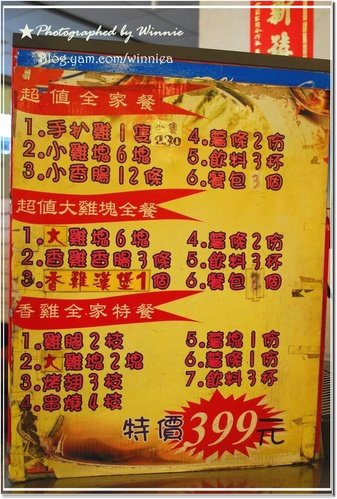 ★ Photographed by Winnie
Blog.yam.com/winniea
超值全家餐
1.手扒雞1隻
2.小雞塊6塊
3.小香腸12條
4.薯條2份
5.飲料3杯
6.餐包3個
超值大雞塊全餐
1.大雞塊6塊
2.香雞香腸3條
3.香雞漢堡1個
4.薯條2份
5.飲料3杯
6.餐包3個
香雞全家特餐
1.雞腿2枝
2.大雞塊2塊
3.烤翅3枝
4.串燒4枝
5.薯塊1份
6.薯條1份
7.飲料3杯
特價399元